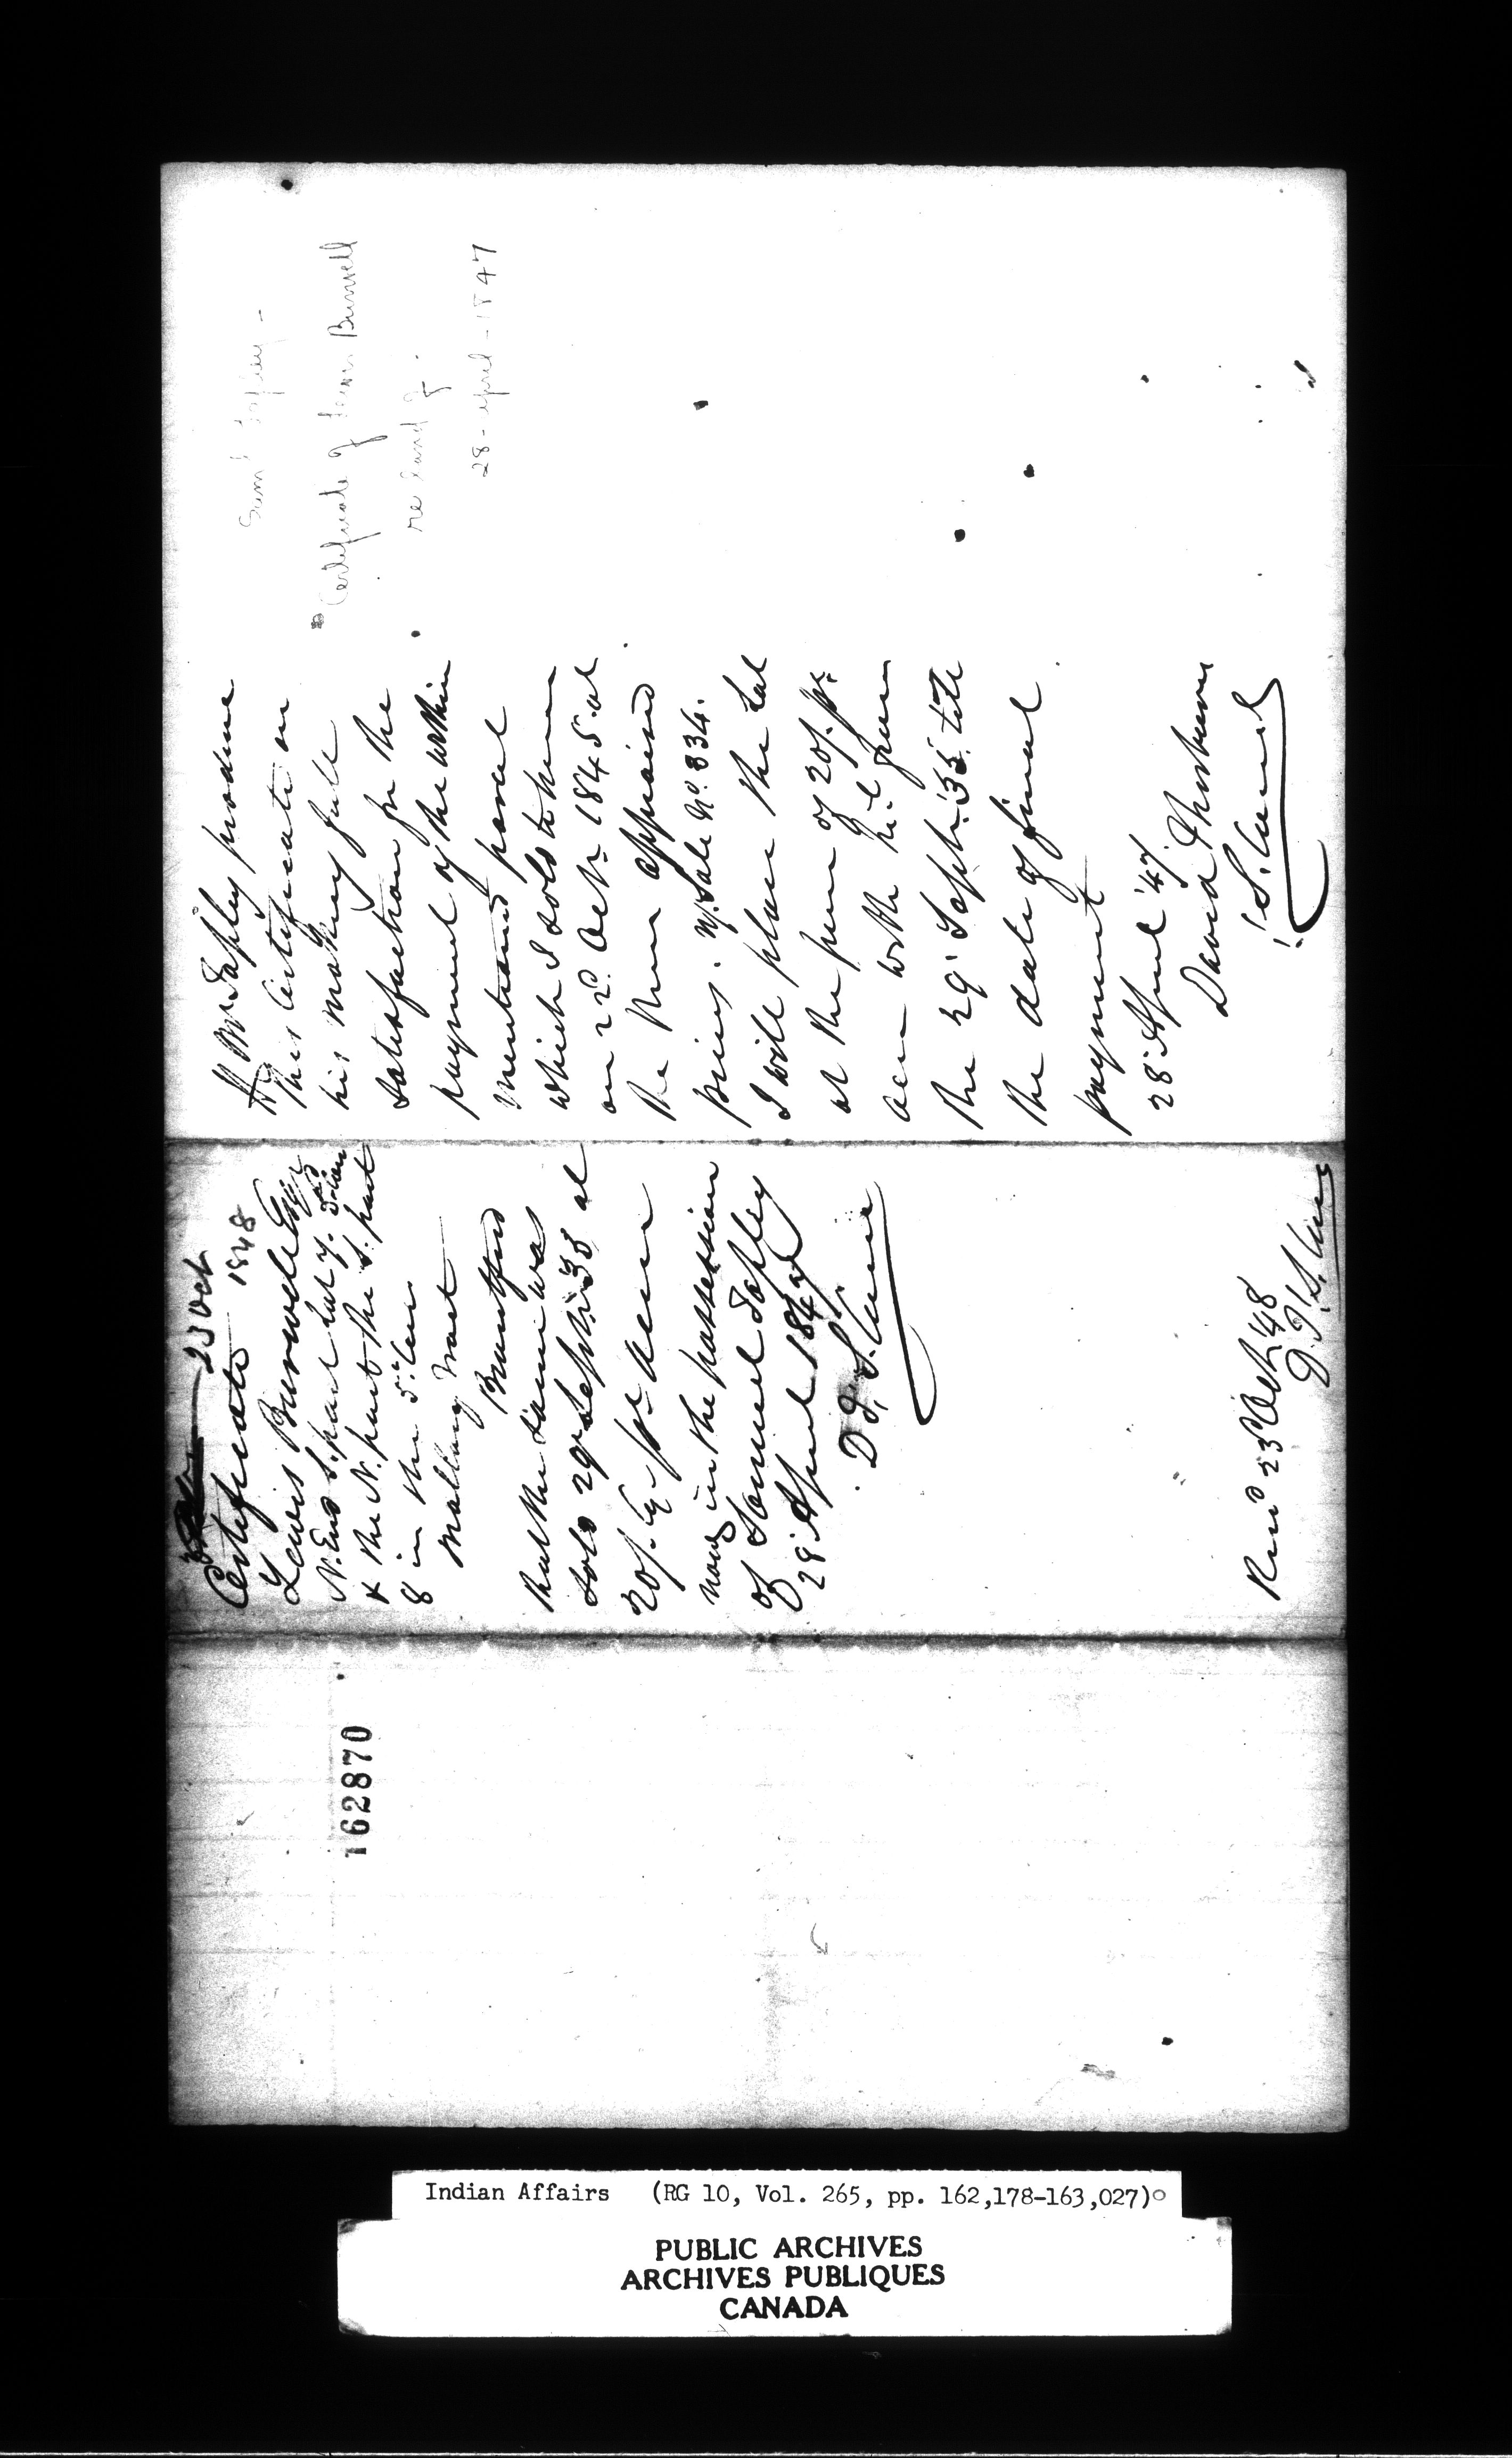 Certificate of Lewis Burwell
re land
28 - April - 1847
If Mr Tapley produce
this Certificate on
his making full
satisfaction for the
payment of the within
mentioned parcel
which I sold to him
on 22d Octr 1845 at
the then appraised
price. Sale No. 834.
I will place the lot
at the price of 20/. pr.
acre with Int from
the 29' Septr '35 till
the date of final
payment
28' April '47
David Thorburn
23 Oct
1848
Certificate
Lewis Burwell Esqr
N. End S. part Lot 7.
& the N. part the S. part
8 in the 5th Con
Tract
Brantford
that the same was
sold 29 Septr 35 at
20/. Cy pr acre
now in the possession
of Samuel Tapley
28' April 1847
D T.
Recd 23d Octr '48
D T.
162870
Indian Affairs (RG 10, Vol. 265, pp. 162,178-163,027)
PUBLIC ARCHIVES
ARCHIVES PUBLIQUES
CANADA